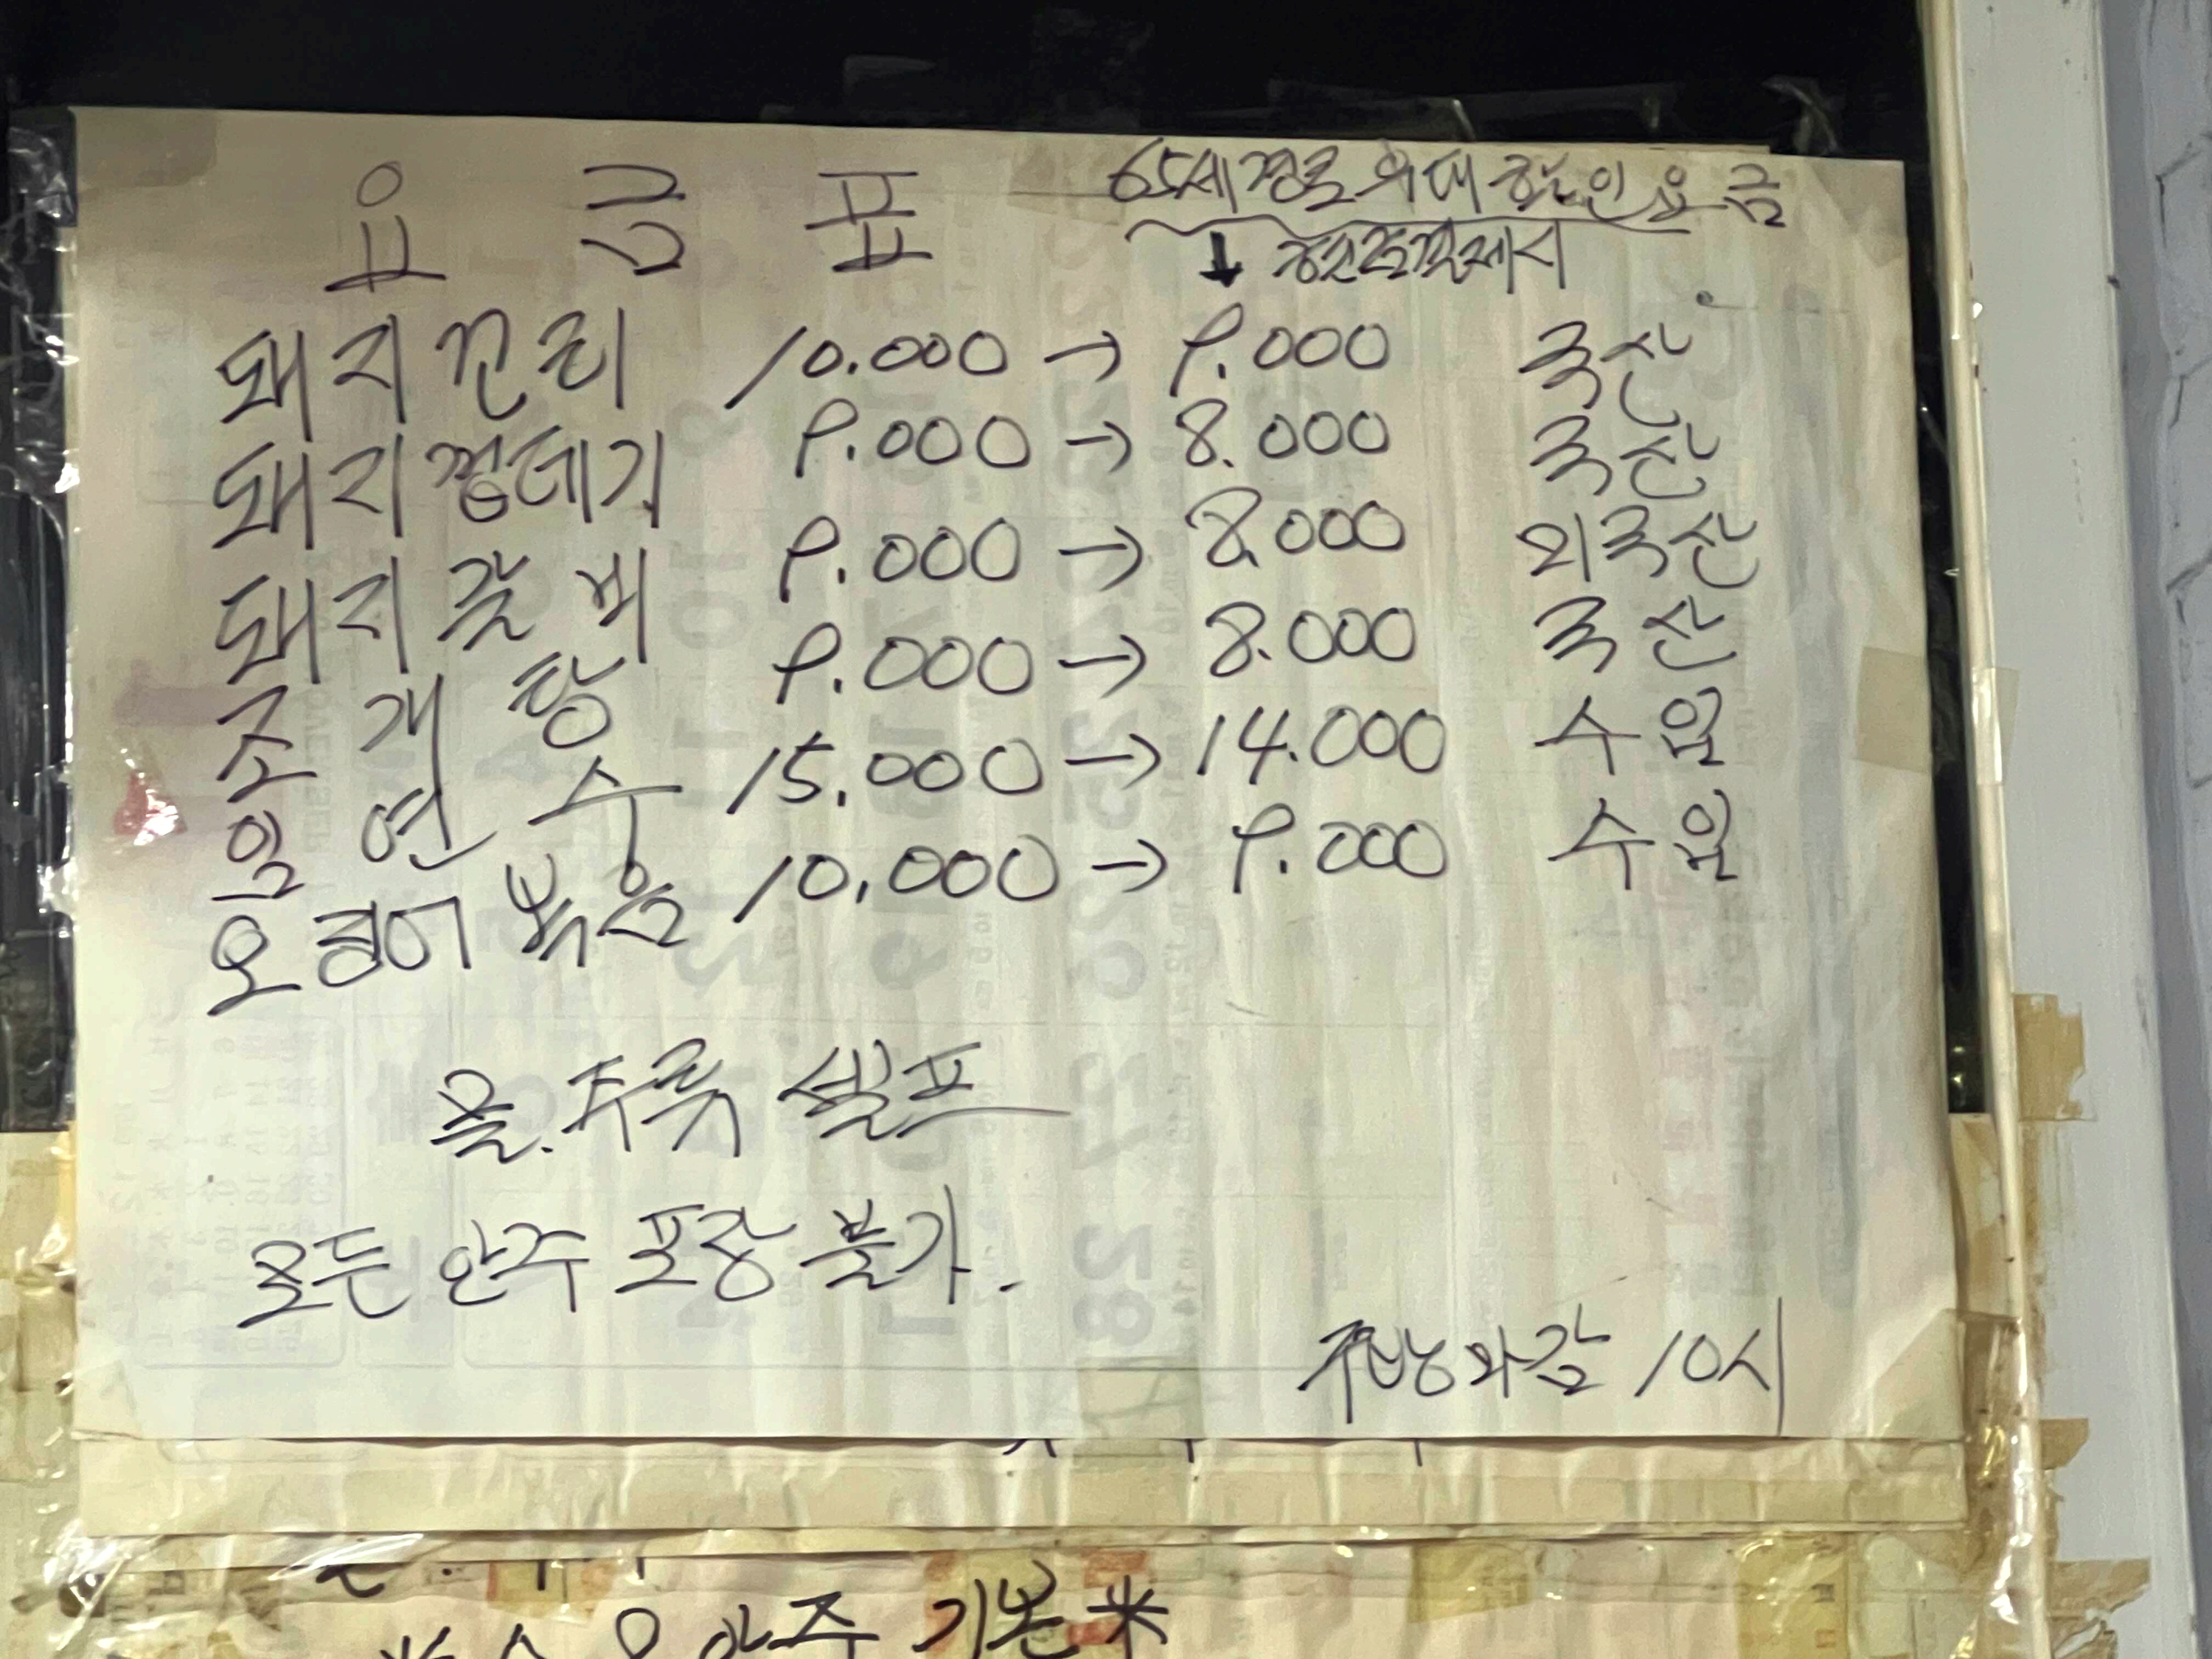 요금표
65세 경로 우대 할인 요금
↓
돼지꼬리 10.000 → 9.000 국산
돼지껍데기 9.000 → 8.000 국산
돼지갈비 9.000 → 8.000 외국산
조개탕 9.000 → 8.000 국산
임연수 15.000 → 14.000 수입
오징어볶음 10.000 → 9.000 수입
물.주류 셀프
모든 안주 포장 불가.
주방마감 10시